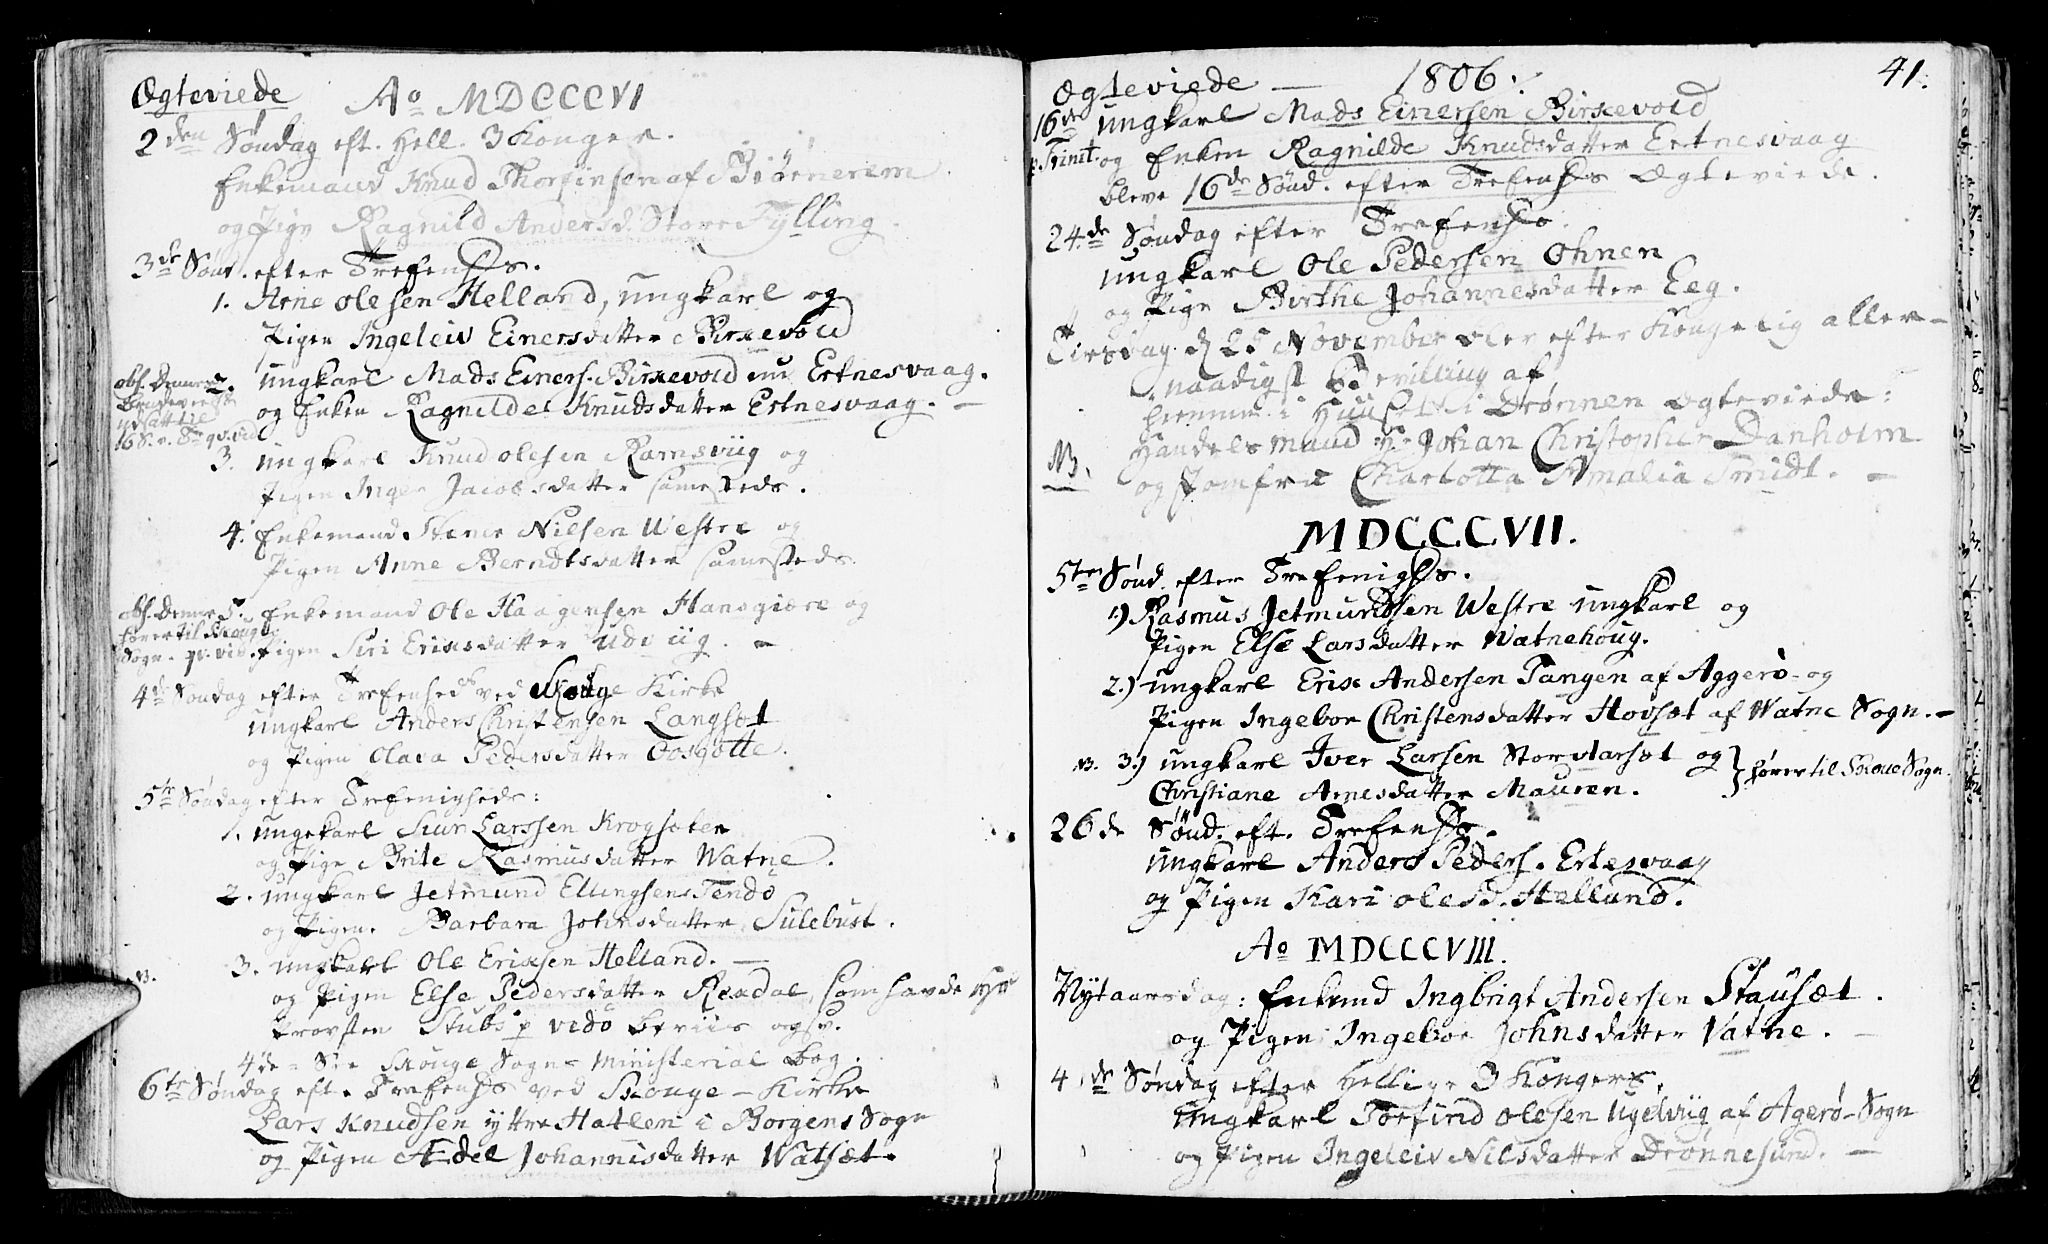 Ægteviede Ao MDCCCVI
2den Søndag eft. Hell. 3 Konger.
Enkemand Knud Thorfinsen af Biørnerem
og Pige Ragnild Andersd. Store Fylling.
3de Sønd. efter Trefenh.
1. Arne Olesen Helland, ungkarl og
Pigen Ingeleiv Einersdatter Birkevold
obs. Denne 2. ungkarl Mads Einers. Birkevold nu Ertnesvaag.
og Enken Ragnilde Knudsdatter Ertnesvaag. -
udsatt til
16 S. p. Tr. qv. vid.
3. ungkarl Knud Olesen Ramsviig og
Pigen Inger Jacobsdatter sammesteds.
4. Enkemand Stener Nilsen Westre og
Pigen Anne Berndtsdatter sammesteds.
obs. Denne 5. Enkemand Ole Haagensen Hansgiære og
hører til Skouge
Sogn. qv. vid. Pigen Siri Eriksdatter Udviig. -
4de Søndag efter Trefenhed ved Skouge Kirke
ungkarl Anders Christensen Langsæt
og Pigen Olava Pedersdatter Oosgotte.
5te Søndag efter Trefenigheds:
1. ungekarl Siur Larssen Krogsæter
og Pige Brite Rasmusdatter Watne.
2. ungkarl Jetmund Ellingsens Tendø
og Pigen. Barbara Johnsdatter Sulebust.
NB. 3. ungkarl Ole Eriksen Helland. -
og Pigen Else Pedersdatter Rekdal, som havde
Provsten Stubs p Vidø beviis
4de - See Skouge Sogns Ministerial bog.
6te Søndag eft. Trefenh ved Skouge - Kirke
Lars Knudsen yttre Hatlem i Borgens Sogn
og Pigen Ædel Johannisdatter Watsæt.
Ægteviede - 1806. 41.
16de ungkarl Mads Einersen Birkevold
p. Trinit. og Enken Ragnilde Knudsdatter Ertnesvaag
bleve 16de Sønd. efter Trefenh Ægteviede.
24de Søndag efter Trefenh.
ungkarl Ole Pedersen Ohnen
og Pige Birthe Johannesdatter Eeg.
Tirsdag. d 25 November efter Kongelig aller-
naadigst Bevilling af
hiemme i Huuset i Drønnen Ægteviede:
NB. Handelsmand Hr Johan Christopher Danholm
og Jomfru Charlotta Amalia Smidt. -
MDCCCVII.
5te Sønd. efter Trefenighs.
1.) Rasmus Jetmundsen Westre ungkarl og
Pigen Else Larsdatter Watnehoug.
2.) ungkarl Erik Andersen Tangen af Aggerø - og
Pigen Ingebor Christensdatter Hovsæt af Watne Sogn. -
NB. 3.) ungkarl Iver Larsen Storvarsæt og } hører til Skoue Sogn.
Christiane Arnesdatter Mauren.
26de Sønd. eft. Trefenh.
ungkarl Anders Peders. Ertesvaag
og Pigen Kari Olesd. Helland.
Ao MDCCCVIII.
Nytaarsdag: Enkemd Ingbrigt Andersen Stausæt.
og Pigen Ingebor Johnsdatter Vatne. -
4de Søndag efter Hellige 3 Kongers.
ungkarl Torfind Olesen Ugelviig af Agerø - Sogn
og Pigen Ingeleiv Nilsdatter Drønnesund. -